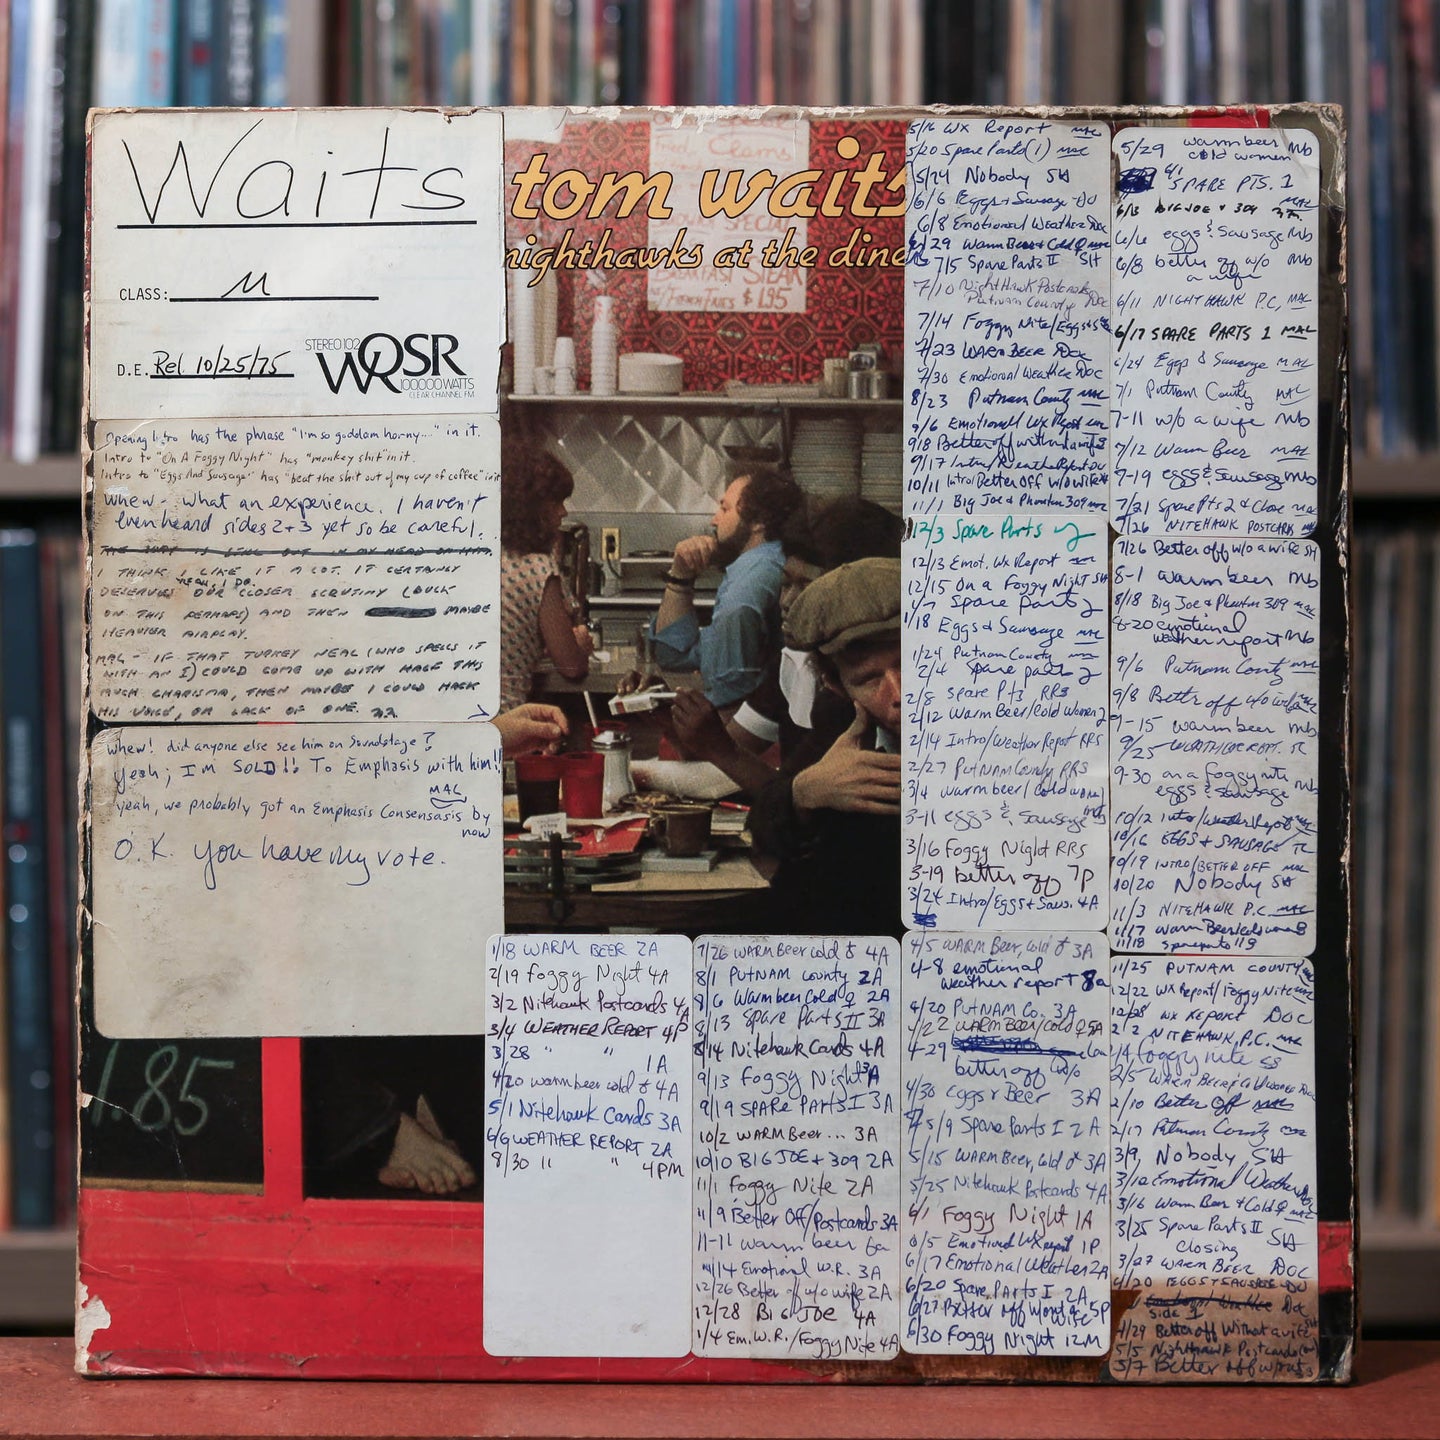 Waits
CLASS: M
D.E. Rel. 10/25/75
STEREO 102
WQSR
100000 WATTS
CLEAR CHANNEL FM
Opening Intro has the phrase "I'm so goddam horny..." in it.
Intro to "On A Foggy Night" has "monkey shit" in it.
Intro to "Eggs And Sausage" has "beat the shit out of my cup of coffee" in it
Whew - what an experience. I haven't
even heard sides 2+3 yet so be careful.
I THINK I LIKE IT A LOT. IT CERTAINLY
DESERVES OUR CLOSER SCRUTINY (DUCK
yeah, I do.
ON THIS PERHAPS) AND THEN MAYBE
HEAVIER AIRPLAY.
MAL - IF THAT TURKEY NEAL (WHO SPELLS IT
WITH AN I) COULD COME UP WITH HALF THIS
MUCH CHARISMA, THEN MAYBE I COULD HACK
HIS VOICE, OR LACK OF ONE.
whew! did anyone else see him on Soundstage?
yeah; I'm SOLD!! To Emphasis with him!!
MAL
yeah, we probably got an Emphasis Consensasis by
now
O.K. you have my vote.
tom waits
nighthawks at the dine
Clams
$1.95
1.85
5/16 WX Report MAL
5/20 Spare Parts (1) MAL
5/24 Nobody SH
6/6 Eggs + Sausage DU
6/8 Emotional Weather Doc
6/29 Warm Beer + Cold ♀ MAL
7/5 Spare Parts II SH
7/10 NightHawk Postcards
Putnam County Doc
7/14 Foggy Nite/Eggs+S
7/23 WARM BEER DOC
7/30 Emotional Weather DOC
8/23 Putnam County MAL
9/6 Emotional WX Report
9/18 Better off without a wife
9/17 Intro/Weather Report DU
10/11 Intro/Better Off w/o wife
11/1 Big Joe & Phantom 309 MAL
12/3 Spare Parts
12/13 Emot. Wx Report
12/15 On a Foggy Night SH
1/7 Spare Parts
1/18 Eggs & Sausage MAL
1/24 Putnam County
2/4 Spare parts
2/8 Spare Pts RRS
2/12 Warm Beer/Cold Women
2/14 Intro/Weather Report RRS
2/27 Putnam County RRS
3/4 warm beer/cold women
3-11 eggs & sausage mb
3/16 Foggy Night RRS
3-19 better off 7P
3/24 Intro/Eggs + Saus. 4A
5/29 warm beer mb
cold women
6/1 SPARE PTS. 1 MAL
6/3 BIG JOE & 309
6/6 eggs & sausage mb
6/8 better off w/o mb
a wife
6/11 NIGHTHAWK P.C. MAL
6/17 SPARE PARTS 1 MAL
6/24 Eggs & Sausage MAL
7/1 Putnam County MAL
7-11 w/o a wife mb
7/12 Warm Beer MAL
7-19 eggs & sausage mb
7/21 Spare Pts 2 & Close
7/26 NITEHAWK POSTCARDS
7/26 Better off w/o a wife SH
8-1 warm beer mb
8/18 Big Joe & Phantom 309
8-20 emotional
weather report mb
9/6 Putnam County
9/8 Better off w/o wife
9-15 warm beer mb
9/25 WEATHER RPT. TL
9-30 on a foggy nite mb
eggs & sausage
10/12 Intro/Weather Report
10/16 EGGS + SAUSAGE TL
10/19 INTRO/BETTER OFF MAL
10/20 Nobody SH
11/3 NITEHAWK P.C. MAL
11/17 Warm Beer/cold women
11/18 spare parts
11/25 PUTNAM COUNTY
12/22 WX Report/Foggy Nite
12/28 WX REPORT DOC
2/2 NITEHAWK P.C. MAL
foggy nite
2/5 WARM BEER/Cold WOMEN
2/10 Better Off
2/17 Putnam County
3/9 Nobody SH
3/12 Emotional Weather
3/16 Warm Beer & Cold ♀
3/25 Spare Parts II SH
closing
3/27 WARM BEER DOC
4/20 EGGS & SAUSAGE DU
Side 1 Doc
4/29 Better off Without a wife SH
5/5 Nighthawk Postcards
5/7 Better off
1/18 WARM BEER 2A
2/19 Foggy Night 4A
3/2 Nitehawk Postcards 4A
3/4 WEATHER REPORT 4P
3/28 " " 1A
4/20 warm beer cold ♀ 4A
5/1 Nitehawk Cards 3A
6/9 WEATHER REPORT 2A
8/30 " " 4PM
7/26 WARM Beer cold ♀ 4A
8/1 PUTNAM County 2A
8/6 Warm beer Cold ♀ 2A
8/13 Spare Parts II 3A
8/14 Nitehawk Cards 4A
9/13 Foggy Night 3A
9/19 SPARE PARTS I 3A
10/2 WARM Beer... 3A
10/10 BIG JOE + 309 2A
11/1 Foggy Nite 2A
11/9 Better Off/Postcards 3A
11-11 warm beer 6a
11/14 Emotional W.R. 3A
12/26 Better off w/o wife 2A
12/28 Big JOE 4A
1/4 Em.W.R./Foggy Nite 4A
4/5 WARM BEER, Cold ♀ 3A
4-8 emotional
weather report 8a
4/20 PUTNAM Co. 3A
4/22 WARM Beer/cold ♀ 5A
4-29 6a
better off w/o
4/30 Eggs & Beer 3A
5/9 Spare Parts I 2A
5/15 WARM BEER, Cold ♀ 3A
5/25 Nitehawk Postcards 4A
6/1 Foggy Night 1A
6/5 Emotional Wx report 1P
6/17 Emotional Weather 2A
6/20 Spare Parts I 2A
6/27 Better off without a 5P
wife
6/30 Foggy Night 12M